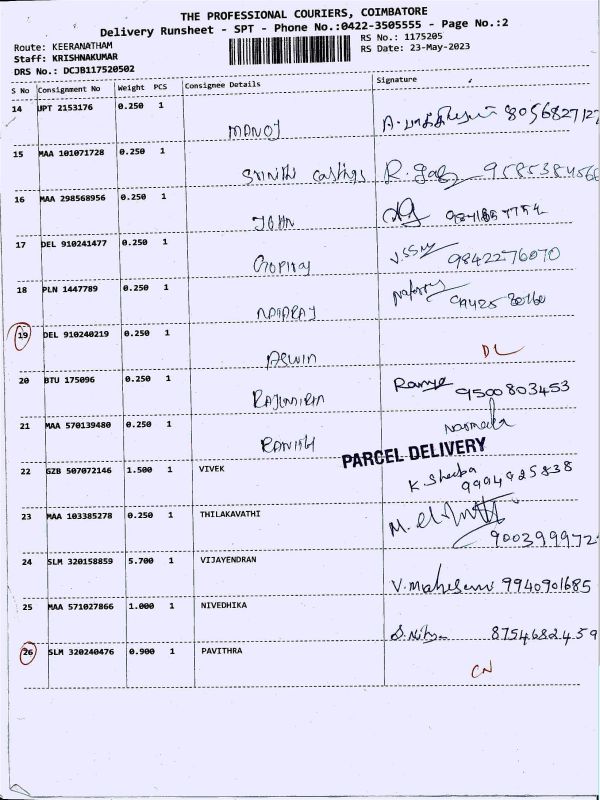 THE PROFESSIONAL COURIERS, COIMBATORE
Delivery Runsheet - SPT - Phone No.:0422-3505555 - Page No.:2
Route: KEERANATHAM
RS No.: 1175205
Staff: KRISHNAKUMAR
RS Date: 23-May-2023
DRS No.: DCJB117520502
S No Consignment No Weight PCS Consignee Details Signature
14 JPT 2153176 0.250 1 MANOJ 8056827127
15 MAA 101071728 0.250 1 Srinithi castings R.
16 MAA 298568956 0.250 1 JOHN
17 DEL 910241477 0.250 1 Gopiraj 9842276070
18 PLN 1447789 0.250 1 NATARAJ
19 DEL 910240219 0.250 1 ASwin DL
20 BTU 175096 0.250 1 Ramya 9500803453
21 MAA 570139480 0.250 1 RANISH
PARCEL DELIVERY
22 GZB 507072146 1.500 1 VIVEK K Sheeba 9994925838
23 MAA 103385278 0.250 1 THILAKAVATHI 900399972
24 SLM 320158859 5.700 1 VIJAYENDRAN V. Maheswari 9940901685
25 MAA 571027866 1.000 1 NIVEDHIKA 8754682459
26 SLM 320240476 0.900 1 PAVITHRA CN